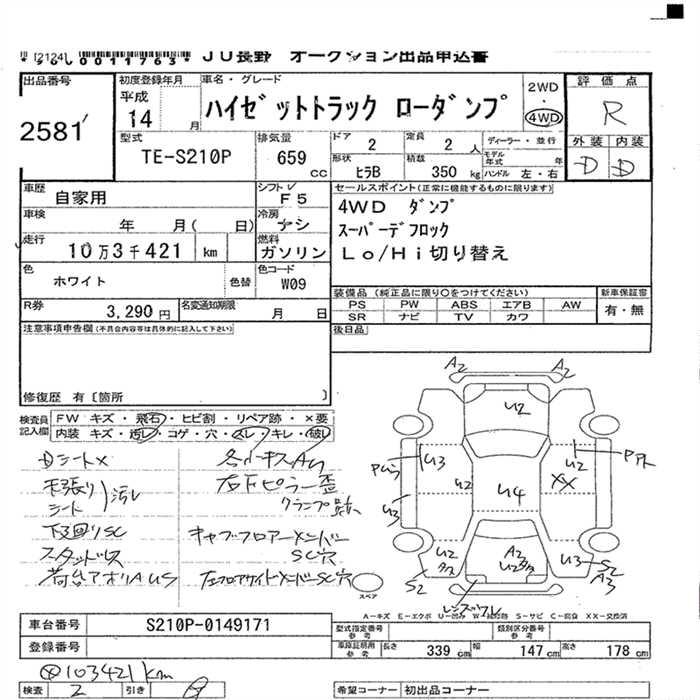 * [2124] 0011763 * JU長野 オークション出品申込書
出品番号 初度登録年月 車名・グレード 2WD 評価点
2581 平成 14 月 ハイゼットトラック ローダンプ ・ 4WD R
型式 排気量 ドア 定員 ディーラー・並行 外装 内装
TE-S210P 659 cc 2 2 人 モデル年式 年 D D
形状 積載 ハンドル 左・右
ヒラB 350 kg
車歴 シフト セールスポイント(正常に機能するものに限ります)
自家用 F5 4WD ダンプ
車検 年 月( 日) 冷房 ナシ スーパーデフロック
走行 10万3千421 km 燃料 ガソリン Lo/Hi切り替え
色 ホワイト 色替 色コード W09
装備品(純正品に限り○をつけてください) 新車保証書
PS PW ABS エアB AW 有・無
SR ナビ TV カワ
R券 3,290円 名変通知期限 月 日 後日品
注意事項申告欄(不具合内容等は具体的に記入して下さい)
修復歴 有〔箇所 〕
検査員記入欄 FW キズ・飛石・ヒビ割・リペア跡・×要
内装 キズ・汚レ・コゲ・穴・スレ・キレ・破レ
Dシート×
天張り
シート
汚レ
下回りSC
スタッドレス
荷台アオリAUS
各所キズAU
右下ピラー歪
クランプ跡
キャブフロアーメンバー
SC穴
左フロアサイドメンバーSC穴
A2 A2
U2
U3 U2 U4 U2 XX
U3
U2 A2 U2 U3 S2
S2 A3
レンズワレ
スペア
A-キズ E-エクボ U-凹み W-補修跡 S-サビ C-腐食 XX-交換済
車台番号 S210P-0149171 型式指定番号 参考 類別区分番号 参考
登録番号 車庫証明用 参考 長さ 339 cm 幅 147 cm 高さ 178 cm
※103421km
検査 2 引き 希望コーナー 初出品コーナー